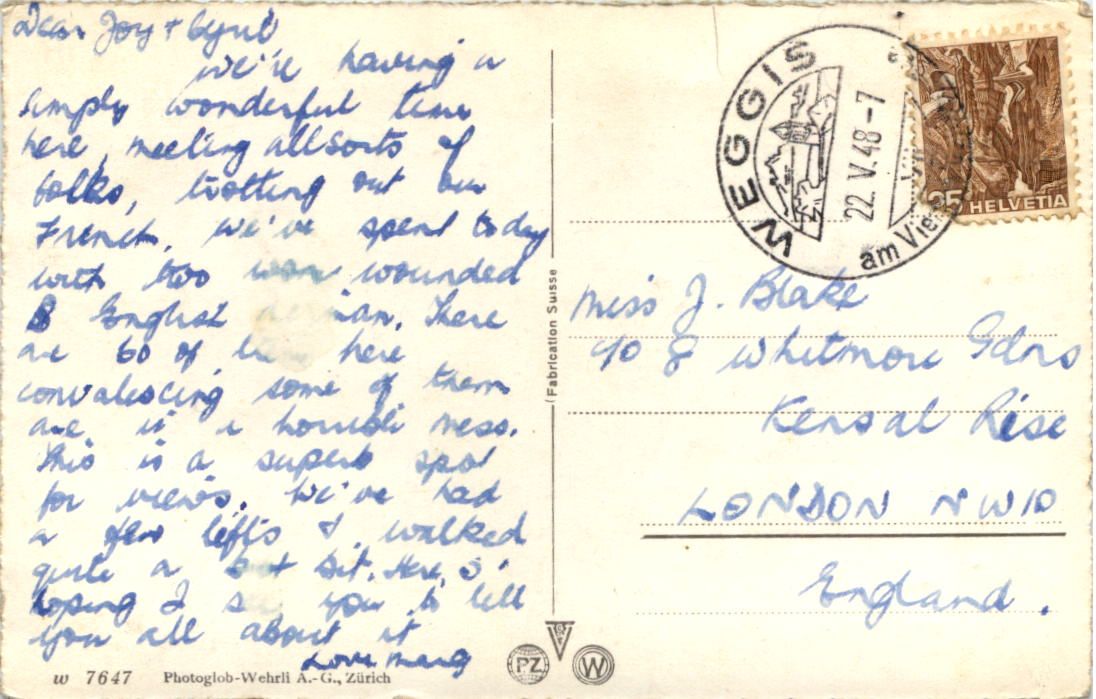 Dear Joy + Cyril
We're having a
simply wonderful time
here, meeting all sorts of
folks, trotting out our
French, we've spent today
with two wounded
English airman. There
are 60 of them here
convalescing some of them
are in a horrible mess.
This is a superb spot
for views. We've had
a few lifts & walked
quite a bit. Here's
hoping I see you to tell
you all about it
Love Marg
w 7647 Photoglob-Wehrli A.-G., Zürich
Fabrication Suisse
PZ W
WEGGIS
22.V.48-7
am Vie
35 HELVETIA
Miss J. Blake
c/o 8 Whitmore Gdns
Kensal Rise
LONDON NW10
England.